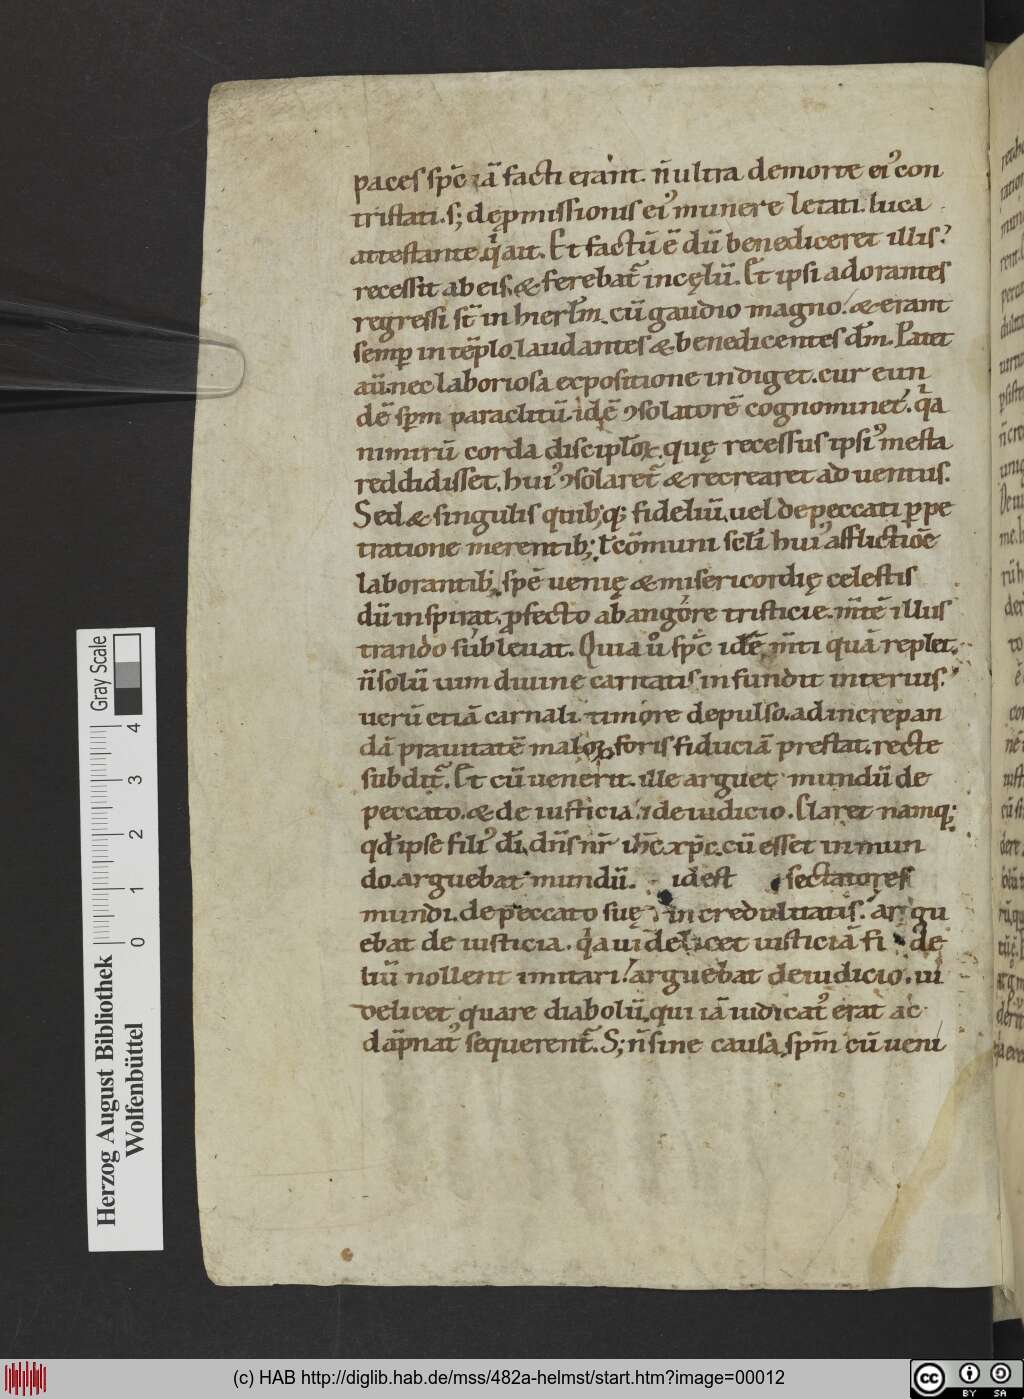 paces sp̄c iā facti erant. n̄ ultra demorte ei᾽ con
tristati. s; dęp̱missionis ei᾽ munere letati. luca
attestante. qͥ ait. Et factū ē dū benediceret illis.᾽
recessit ab eis. & ferebat᷑ in cęlū. Et ipsi adorantes
regressi st̄ in hierłm. cū gaudio magno. & erant
semp̱ in tēplo. laudantes & benedicentes dm̄. Patet
aū. nec laboriosa expositione indiget. cur eun
dē sp̄m paraclitū. idē ꝯsolatorē cognominet. qͣa
nimirū corda discipłoꝝ. quę recessus ipsi᾽ mesta
reddidisset. hui᾽ ꝯsolaret᷑ & recrearet adventus.
Sed & singulis quib;q; fideliū. vel depeccati p̱pe
tratione merentib;. ł cōmuni sclı̄ hui᾽ afflictiōe
laborantib;. spē uenię & misericordię celestis
dū inspirat. p̱fecto ab angore tristicie. m̄tē illus
trando subleuat. Quia ů sp̄c idē m̄ti quā replet.
n̄ solū uim diuine caritatis infundit interius.᾽
uerū etiā carnali timore depulso. ad increpan
dā prauitatē maloꝝ. foris fiduciā prestat. recte
subdit᷑. Et cū uenerit. ille arguet mundū de
peccato. & de iusticia. ⁊ de iudicio. Claret namq;
qđ ipse fili᾽ dı̄. dn̄s nr̄ ih̄c xp̄c. cū esset in mun
do. arguebat mundū. idest sectatores
mundi. de peccato suę incredulitatis. argu
ebat de iusticia. qͣa uidelicet iusticiā fi de
liū nollent imitari. arguebat de iudicio. ui
delicet quare diabolū. qui iā iudicat᾽ erat ac
dāpnat᾽ sequerent᷑. S; n̄ sine causa. sp̄m cū ueni
Herzog August Bibliothek
Wolfenbüttel
Gray Scale
0 1 2 3 4
(c) HAB http://diglib.hab.de/mss/482a-helmst/start.htm?image=00012
cc BY SA